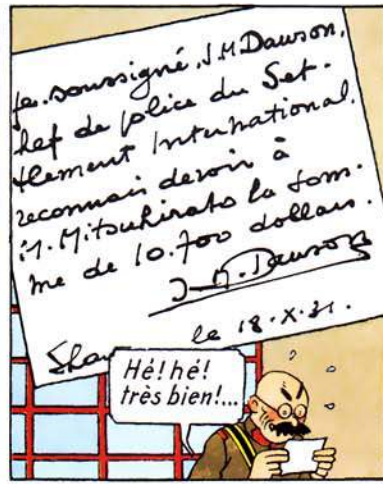 je soussigné, J.M Dawson,
hef de police du Set-
tlement International.
reconnais devoir à
M. Mitsuhirato la som-
me de 10.700 dollars.
J-M. Dawson
le 18.X.31.
Hé! hé!
très bien!...